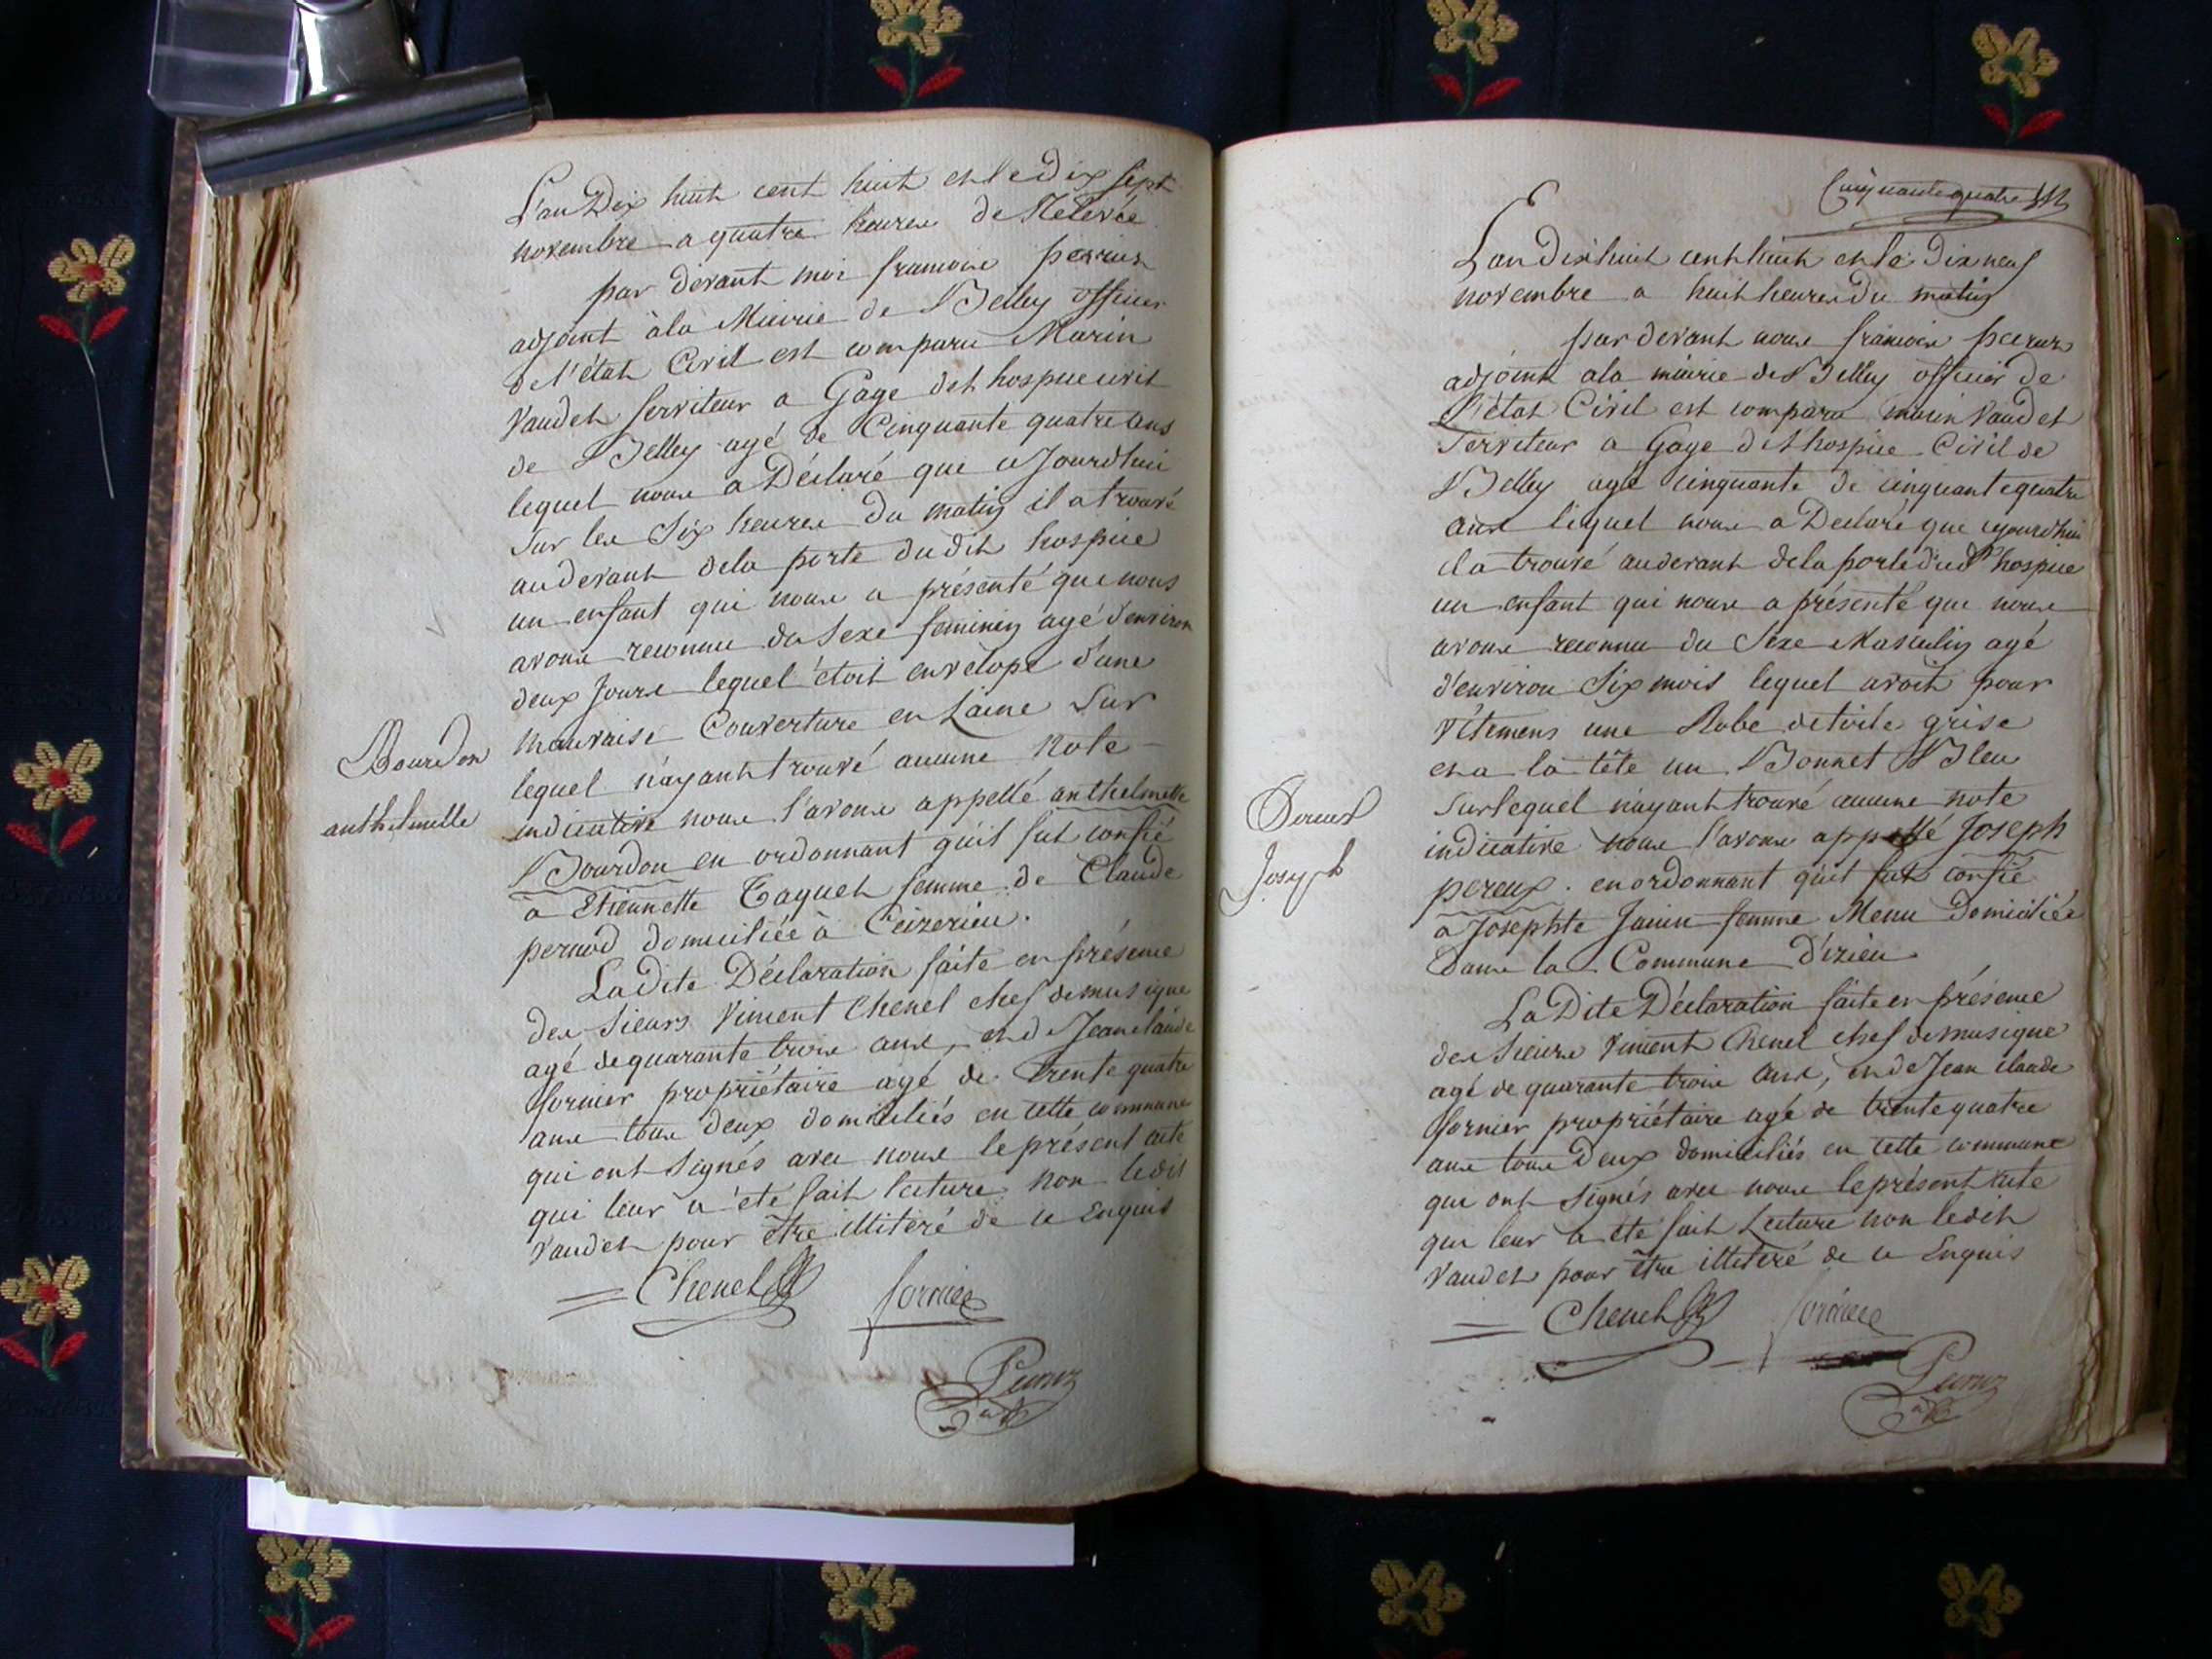 L'an Dix huit cent huit et le dix sept
novembre a quatre heures de Relevée
par devant moi francois perrier
adjoint à la Mairie de Belley officier
de l'état Civil est comparu Marin
Vaudet serviteur a Gage de l hospice civil
de Belley agé de Cinquante quatre ans
lequel nous a Déclaré que ce Jourdhui
sur les Six heures du matin il a trouvé
au devant dela porte du dit hospice
un enfant qui nous a présenté que nous
avons reconnu du Sexe feminin agé d'environ
deux Jours lequel étoit envelopé d'une
mauvaise Couverture en Laine sur
lequel n'ayant trouvé aucune Note
indicative nous l'avons appellé anthelmette
Bourdon en ordonnant qu'il fut confié
à Etiennette Taquet femme de Claude
pernod domiciliée à Ceizerieu.
La dite Déclaration faite en présence
des sieurs Vincent Chenel chef de musique
agé de quarante trois ans, et de Jean claude
fornier propriétaire agé de trente quatre
ans tous deux domiciliés en cette commune
qui ont signés avec nous le présent acte
qui leur a été fait lecture non ledit
Vaudet pour être illiteré de ce Enquis
Chenel fornier
Bourdon
anthelmette
Cinquante quatre
L'an Dix huit cent huit et le Dix neuf
novembre a huit heures du matin
par devant nous francois
adjoint a la mairie de Belley officier de
l'état Civil est comparu marin Vaudet
serviteur a Gage de l hospice Civil de
Belley agé cinquante de cinquante quatre
ans lequel nous a Declaré que cejourdhui
il a trouvé au devant de la porte dud hospice
un enfant qui nous a présenté que nous
avons reconnu du Sexe Masculin agé
d'environ Six mois lequel avoit pour
vêtemens une Robe de toile grise
et a la tête un Bonnet Bleu
sur lequel n'ayant trouvé aucune note
indicative nous l'avons appellé Joseph
pereux. en ordonnant qu'il fut confié
à Josephte Janin femme Menu Domiciliée
dans la Commune D'izieu
La Dite Déclaration faite en présence
des sieurs Vincent Chenel chef de musique
agé de quarante trois ans, et de Jean claude
fornier propriétaire agé de trente quatre
ans tous Deux domiciliés en cette commune
qui ont signés avec nous le présent acte
qui leur a été fait Lecture non ledit
Vaudet pour être illiteré de ce Enquis
Chenel fornier
Joseph